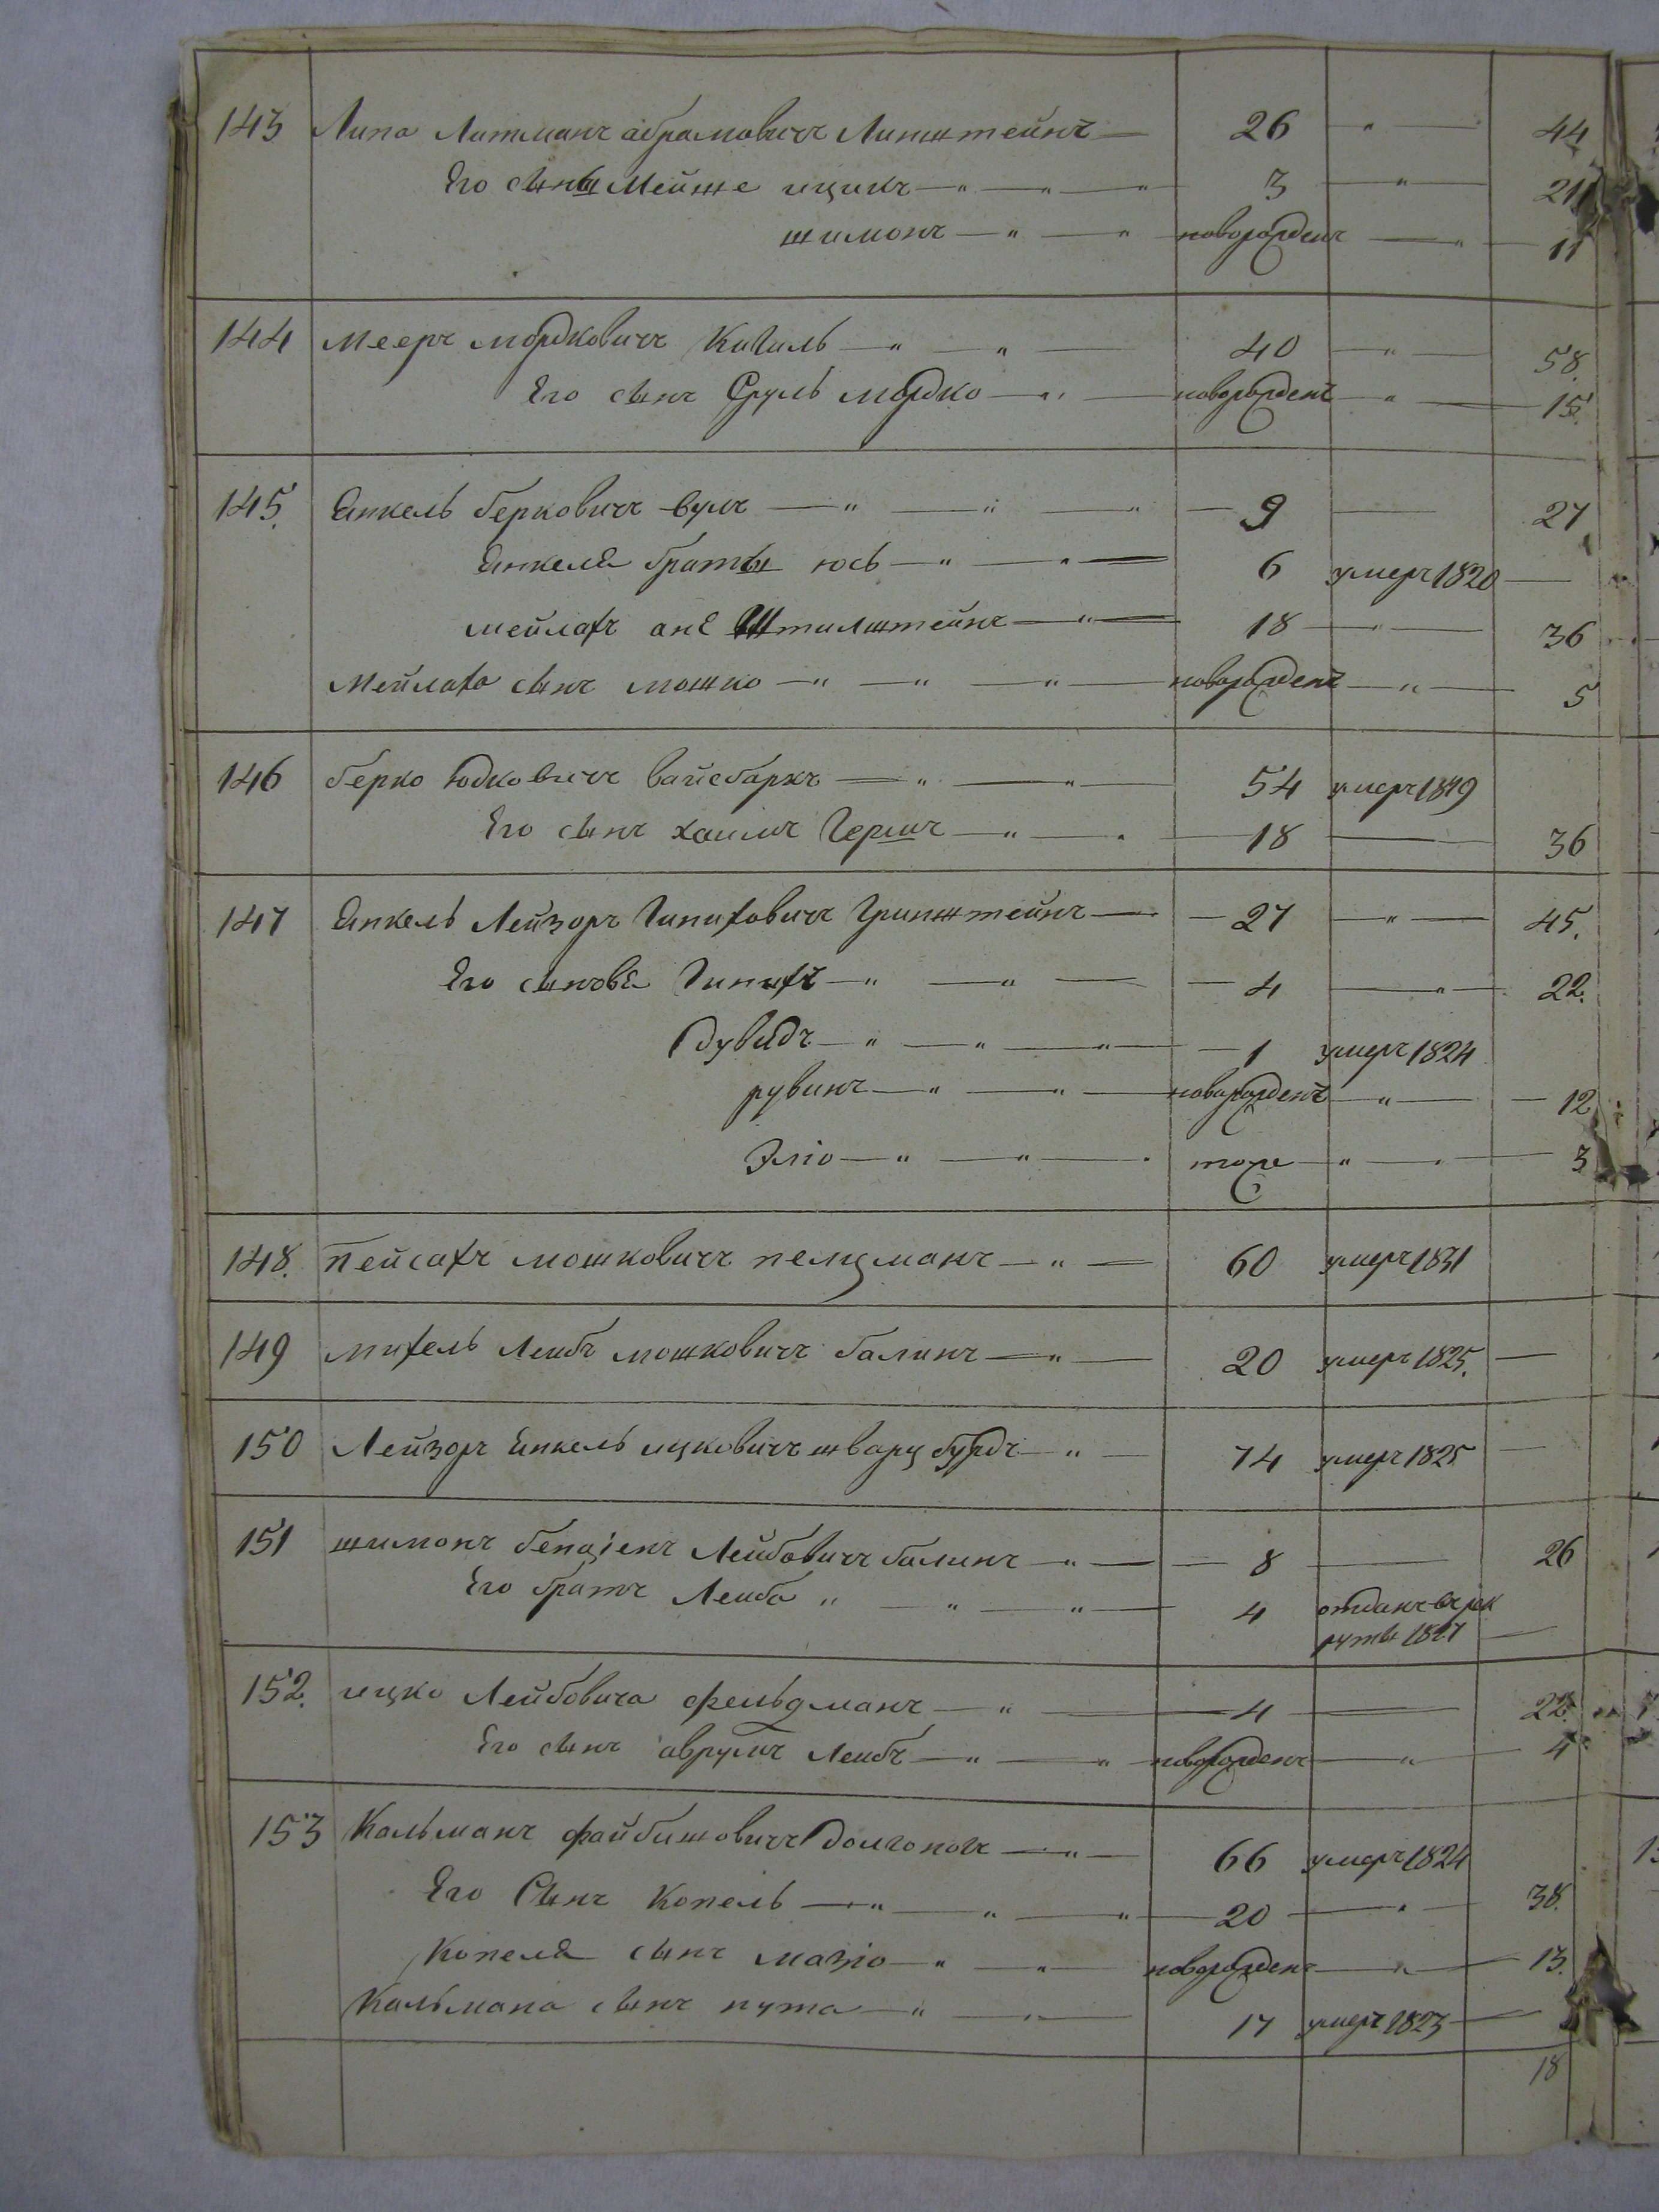 143 Липа Литманъ абрамовичъ Липштейнъ — 26 " 44
Его сыны Мейше ицикъ — " — " — " 3 — " — 21
шимонъ — " — " новорожденъ — " — 11
144 Мееръ мордковичъ Кигиль — " — " — 40 — " — 58.
Его сынъ Сруль мордко — " — новорожденъ — " — 15.
145. Янкель берковичъ вулъ — " — " — " — 9 — 27
Янкеля браты юсь — " — " — 6 умеръ 1820 —
мейлахъ онъ Штилштейнъ — " — 18 — " — 36
Мейлаха сынъ мошко — " — " — " — новорожденъ — " — 5
146 берко Юдковичъ вайсбаркъ — " — " — 54 умеръ 1819
Его сынъ хаимъ Гершъ — " — " — 18 — 36
147 Янкель Лейзоръ Пинхсовичъ Гринштейнъ — 27 — " — 45.
Его сыновья — " — " — 4 — " — 22.
Дувидъ — " — " — " — 1 умеръ 1824
рувинъ — " — " — новорожденъ — " — 12
Эліо — " — " — " тоже — " — " — 3
148. Пейсахъ мошковичъ пелцманъ — " — 60 умеръ 1831
149 михель Лейбъ мошковичъ балинъ — " — 20 умеръ 1825. —
150 Лейзоръ Янкель ицковичъ шварцбурдъ — " — 74 умеръ 1825 —
151 шимонъ бенціенъ Лейбовичъ балинъ — " — 8 — 26
Его братъ Лейба " — " — " — 4 отданъ въ рек
руты 1827 —
152. ицко Лейбовича фельдманъ — " — 4 — 22.
Его сынъ аврумъ Лейбъ — " — " — новорожденъ — " — 4
153 Кальманъ файбишовичъ Долгоногъ — " — 66 умеръ 1824
Его Сынъ Копель — " — " — " — 20 — " — 38.
Копеля сынъ мазіо — " — " — новорожденъ — " — 13.
Кальмана сынъ нута — " — " — 17 умеръ 1823 —
18